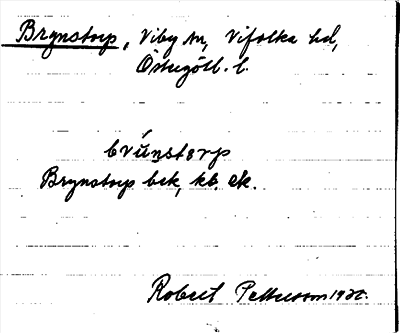 Brynstorp, Viby sn, Vifolka hd,
Östergötl. l.
brúnstorp
Brynstorp bck, kb. ek.
Robert Pettersson 19